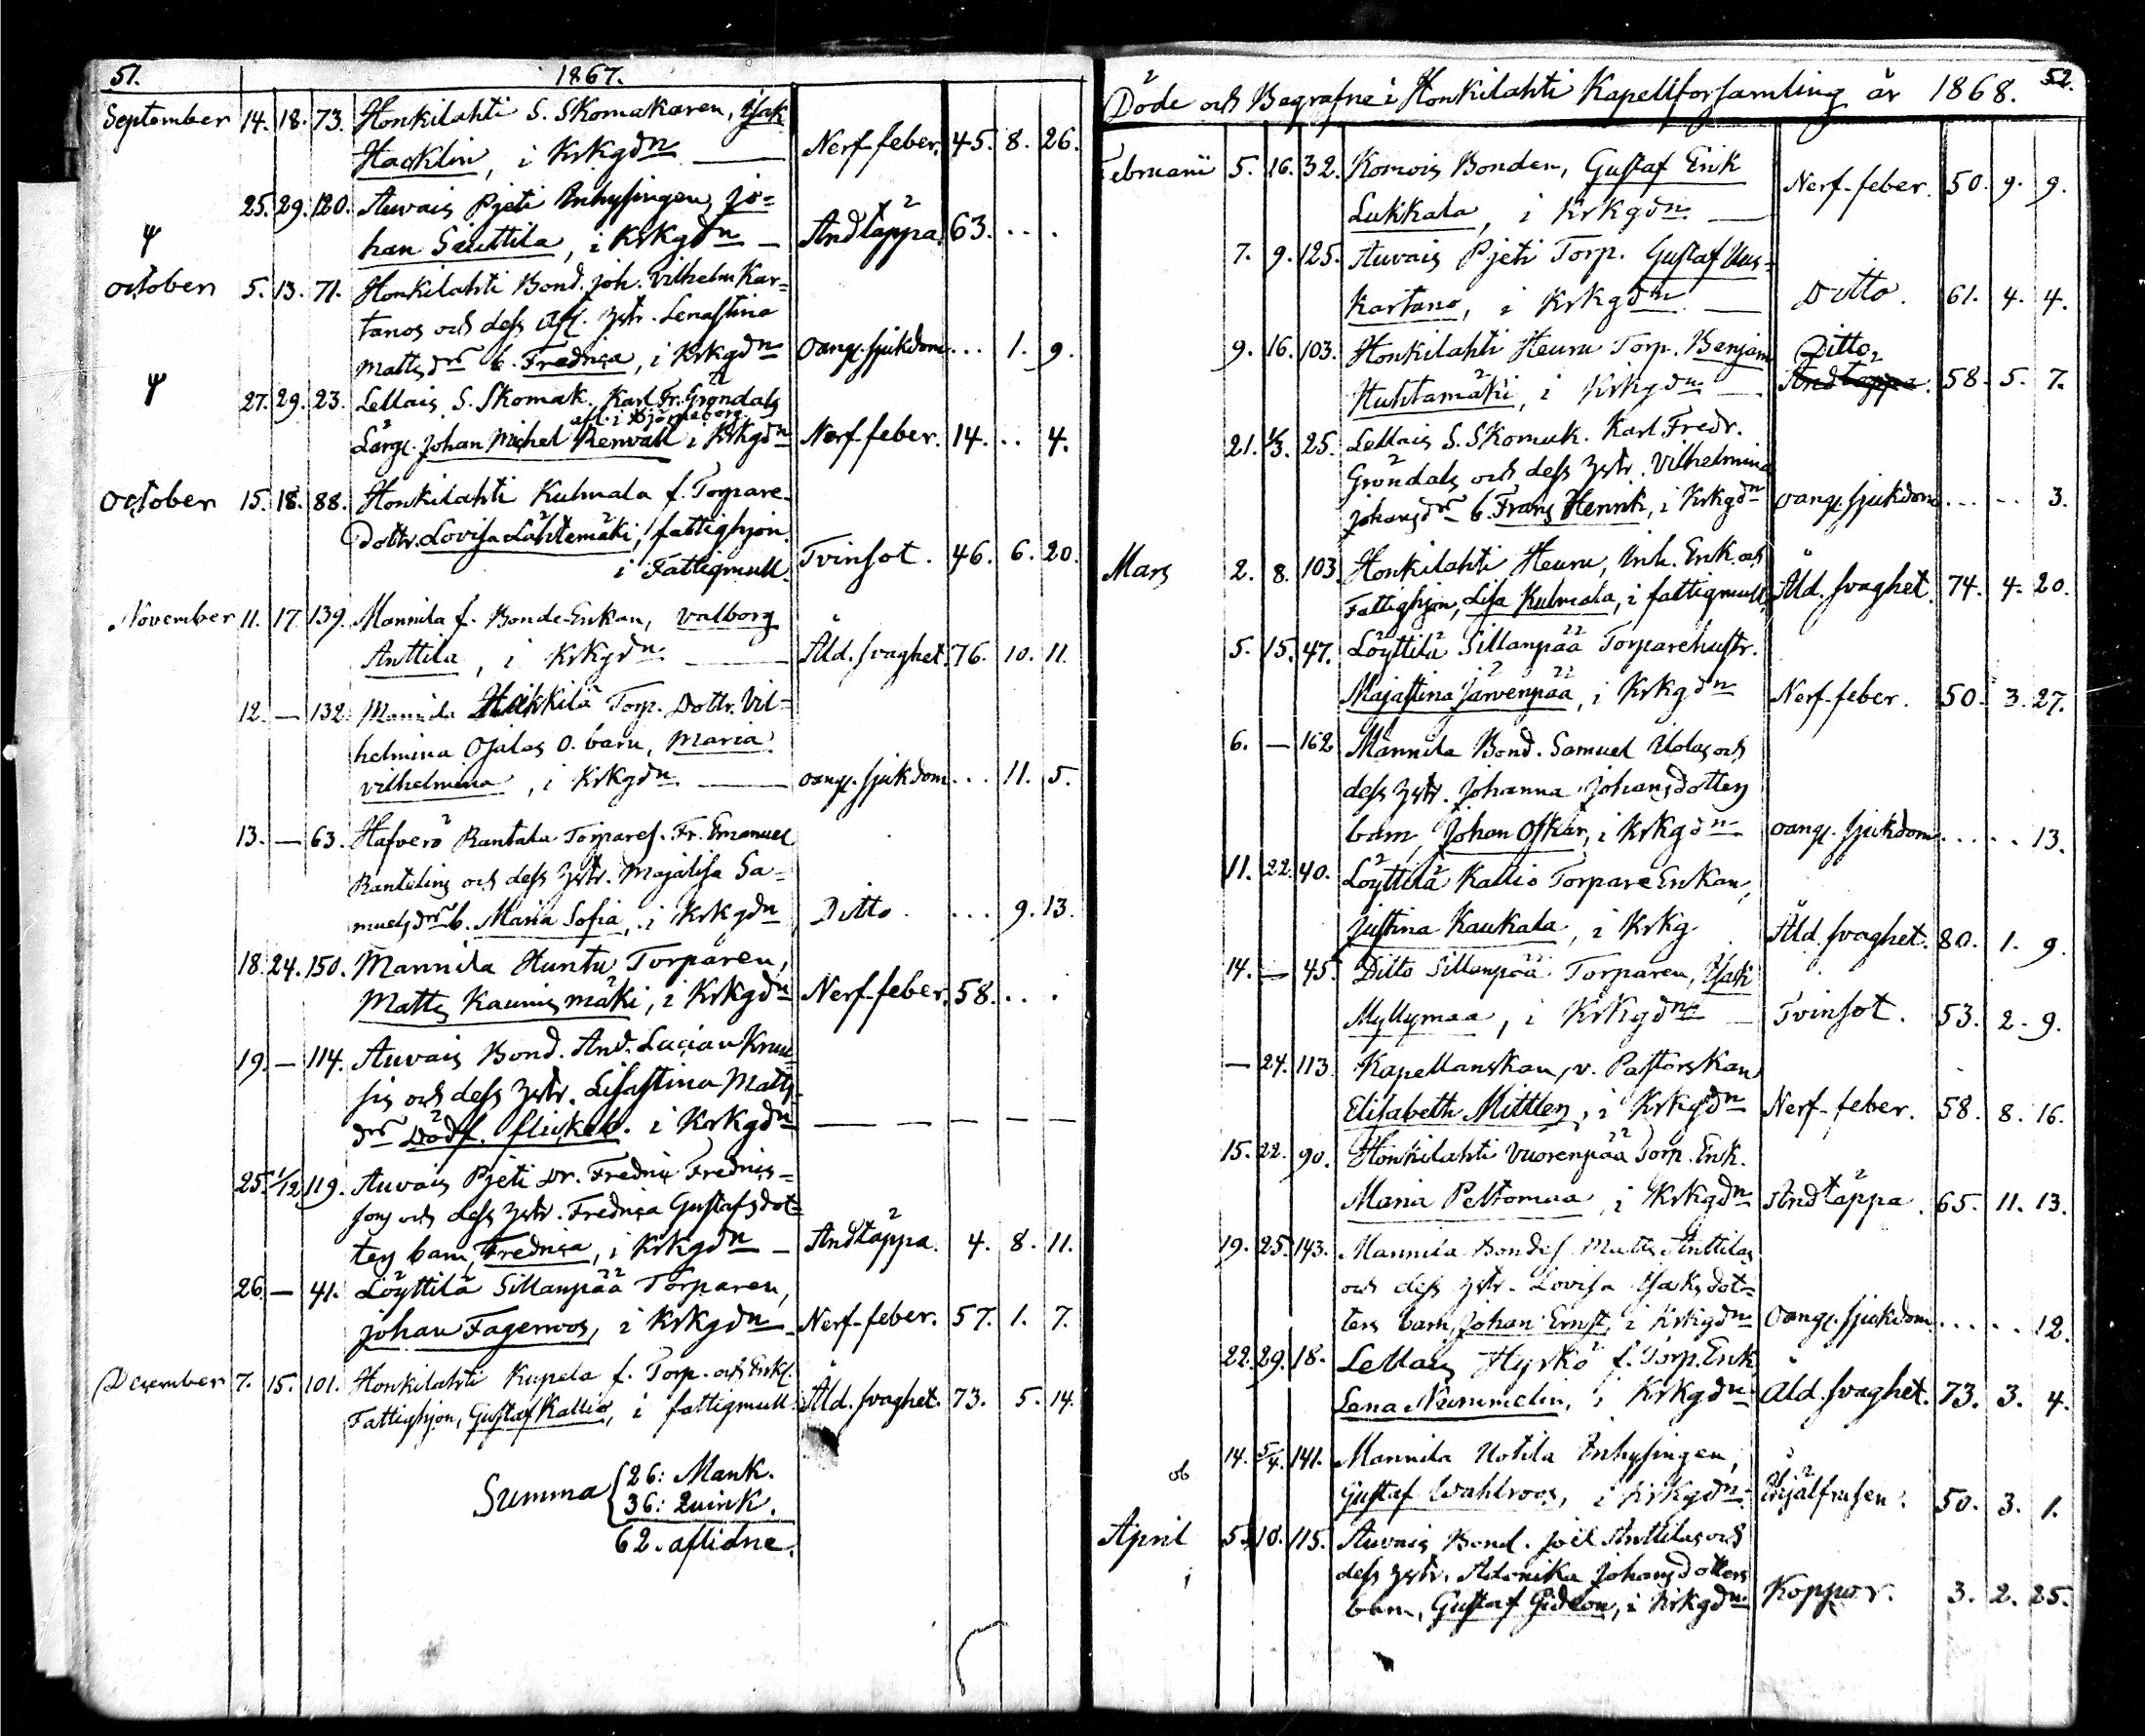 51. 1867.
September 14. 18. 73. Honkilahti S. Skomakaren, Isak
Hacklin, i Krkgdn — Nerf-feber. 45. 8. 26.
25. 29. 120. Auvais Pjeti Inhysingen, Jo=
han Säuttilä, i Krkgdn — Andtäppa. 63. . . .
October 5. 13. 71. Honkilahti Bond. Joh. Vilhelm Kar=
tanos och dess afl. hstr. Lenastina
Mattsdrs b. Fredrica, i Krkgdn Oang. sjukdom . . . 1. 9.
27. 29. 23. Lellais S. Skomak. Karl Fr. Gröndals
afl. i Björneborg
Lärgl. Johan Michel Renvall i Krkgdn Nerf-feber. 14. . . 4.
October 15. 18. 88. Honkilahti Kulmala f. Torpare-
Dottr. Lovisa Lähtemäki, fattighjon.
i Fattigmull. Tvinsot. 46. 6. 20.
November 11. 17. 139. Mannila f. Bonde-Enkan, Valborg
Anttila, i Krkgdn — Åld. svaghet. 76. 10. 11.
12. — 132. Mannila Heikkilä Torp. Dottr. Vil=
helmina Ojalas O. barn, Maria
Vilhelmina, i Krkgdn — oang. sjukdom . . . 11. 5.
13. — 63. Hafverö Rantala Torpares. Fr. Emanuel
Rantelins och dess hstr. Majalisa Sa=
muelsdrs b. Maria Sofia, i Krkgdn Ditto. . . . 9. 13.
18. 24. 150. Mannila Huntu Torparen,
Matts Kaunismäki, i Krkgdn Nerf-feber. 58. . . .
19. — 114. Auvais Bond. And. Lucian Kruu=
sis och dess hstr. Lisastina Matts=
drs Dödf. flickeb. i Krkgdn — — — —
25. 1/12 119. Auvais Pjeti Dr. Fredric Fredrics=
sons och dess hstr. Fredrica Gustafsdot=
ters barn, Fredrica, i Krkgdn — Andtäppa. 4. 8. 11.
26. — 41. Löyttilä Sillanpää Torparen,
Johan Fagerroos, i Krkgdn Nerf-feber. 57. 1. 7.
December 7. 15. 101. Honkilahti Kupela f. Torp. och Enkl.
Fattighjon, Gustaf Kallio, i fattigmull. Åld. svaghet. 73. 5. 14.
Summa 26: Mank.
36: Quink.
62. aflidne.
Döde och Begrafne i Honkilahti Kapellförsamling år 1868. 52.
Februarii 5. 16. 32. Komois Bonden, Gustaf Erik
Lukkala, i Krkgdn — Nerf-feber. 50. 9. 9.
7. 9. 125. Auvais Pjeti Torp. Gustaf Uus=
kartano, i Krkgdn — Ditto. 61. 4. 4.
9. 16. 103. Honkilahti Heuru Torp. Benjam Ditto
Huhtamäki, i Krkgdn — Andtäppa. 58. 5. 7.
21. 1/3. 25. Lellais S. Skomak. Karl Fredr.
Gröndals och dess hstr. Vilhelmina
Johansdrs b. Frans Henrik, i Krkgdn oang. sjukdom . . . . . 3.
Mars 2. 8. 103. Honkilahti Heuru, Inh. Enk. och
Fattighjon, Lisa Kulmala, i fattigmull, Åld. svaghet. 74. 4. 20.
5. 15. 47. Löyttilä Sillanpää Torparehustr.
Majastina Järvenpää, i Krkgdn Nerf-feber. 50. 3. 27.
6. — 162. Mannila Bond. Samuel Uolas och
dess hstr. Johanna Johansdotters
barn, Johan Oskar, i Krkgdn oang. sjukdom . . . . . 13.
11. 22. 40. Löyttilä Kallio Torpare Enkan,
Justina Kaukala, i Krkg Åld. svaghet. 80. 1. 9.
14. — 45. Ditto Sillanpää Torparen, Isak
Myllymaa, i Krkgdn — Tvinsot. 53. 2. 9.
— 24. 113. Kapellanskan, v. Pastorskan
Elisabeth Mittler, i Krkgdn Nerf-feber. 58. 8. 16.
15. 22. 90. Honkilahti Vuorenpää Torp. Enk.
Maria Peltomaa, i Krkgdn Andtäppa. 65. 11. 13.
19. 25. 143. Mannila Bondes. Matts Anttilas
och dess hstr. Lovisa Isaksdot=
ters barn, Johan Ernst, i Krkgdn Oang. sjukdom . . . . . 12.
22. 29. 18. Lellais Hyrkö f. Torp. Enk.
Lena Nummelin, i Krkgdn Åld. svaghet. 73. 3. 4.
14. 5/4. 141. Mannila Uotila Inhysingen,
Gustaf Wahlroos, i Krkgdn ihjälfrusen. 50. 3. 1.
April 5. 10. 115. Auvais Bond. Joël Anttilas och
dess hstr. Adonika Johansdotters
barn, Gustaf Gideon, i Krkgdn Koppor. 3. 2. 25.